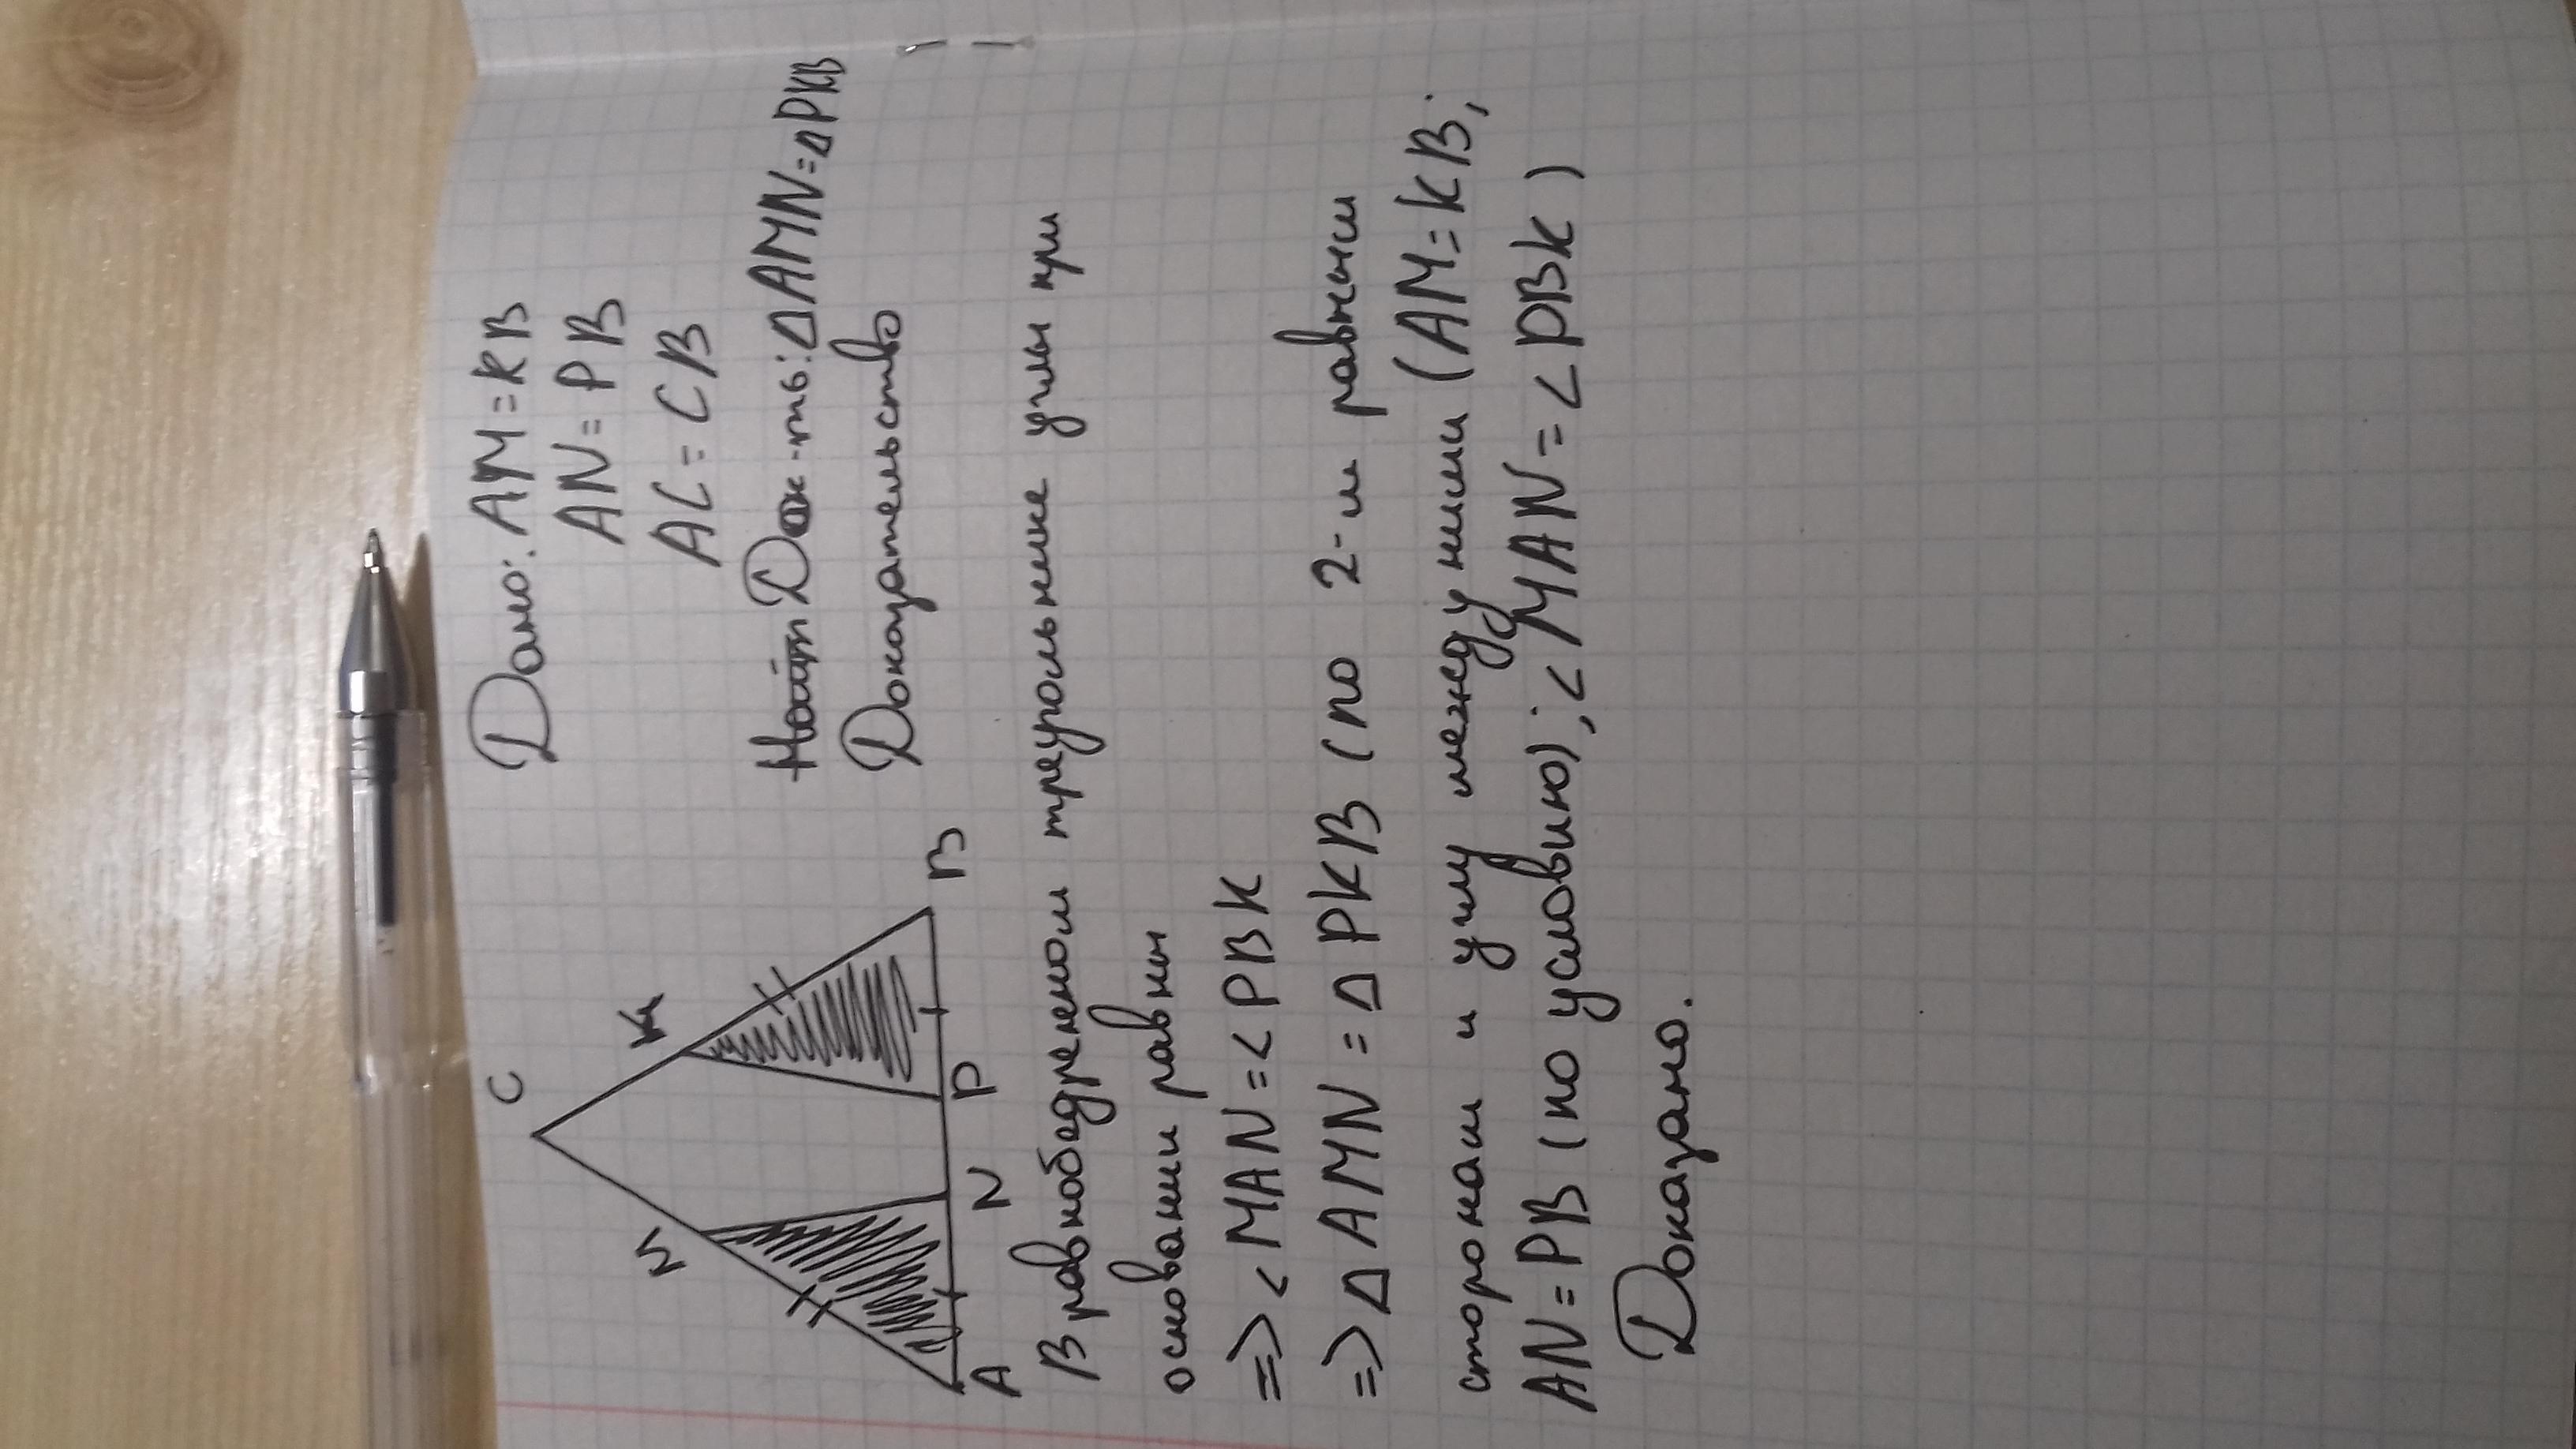 Дано: AM = KB
AN = PB
AC = CB
Найти Док-ть: Δ AMN = Δ PKB
Доказательство
C
M
K
A
N
P
B
В равнобедренном треугольнике углы при
основании равны
=> < MAN = < PBK
=> Δ AMN = Δ PKB (по 2-м равным
сторонам и углу между ними (AM = KB;
AN = PB (по условию); < MAN = < PBK)
Доказано.